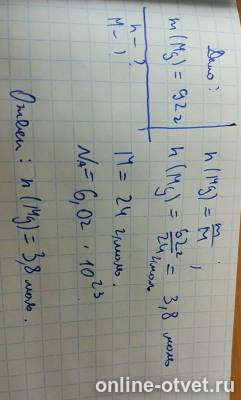 Дано:
m(Mg) = 92г
n - ?
M - ?
n(Mg) = m/M ;
n(Mg) = 92г / 24 г/моль = 3,8 моль
M = 24 г/моль.
Nₐ = 6,02 · 10²³
Ответ: n(Mg) = 3,8 моль.
online-otvet.ru